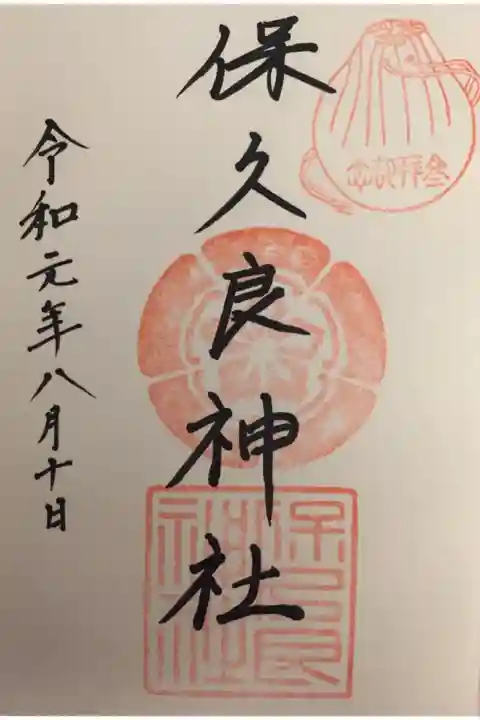 参拝記念
保久良神社
保久良神社
令和元年八月十日